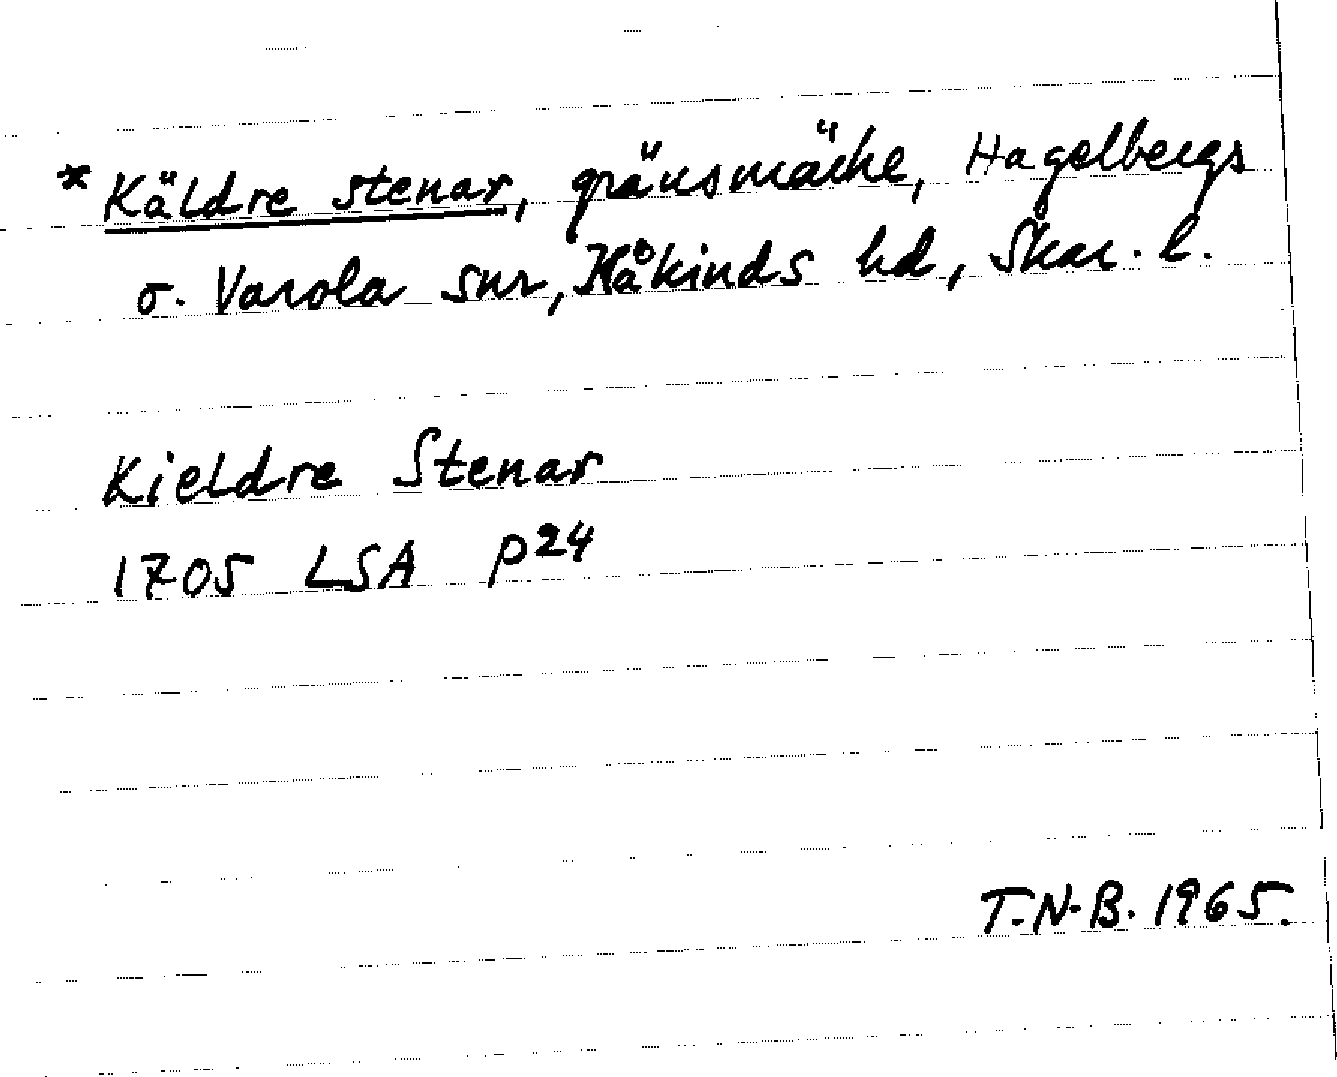 * Käldre stenar, gränsmärke, Hagelbergs
o. Varola snr, Kåkinds hd, Skar. l.
Kieldre Stenar
1705 LSA p24
T.N.B. 1965.